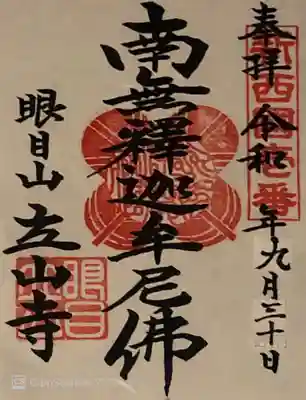 奉拝 令和 年九月三十日
新西國壱番
南無釋迦牟尼佛
眼目山 立山寺